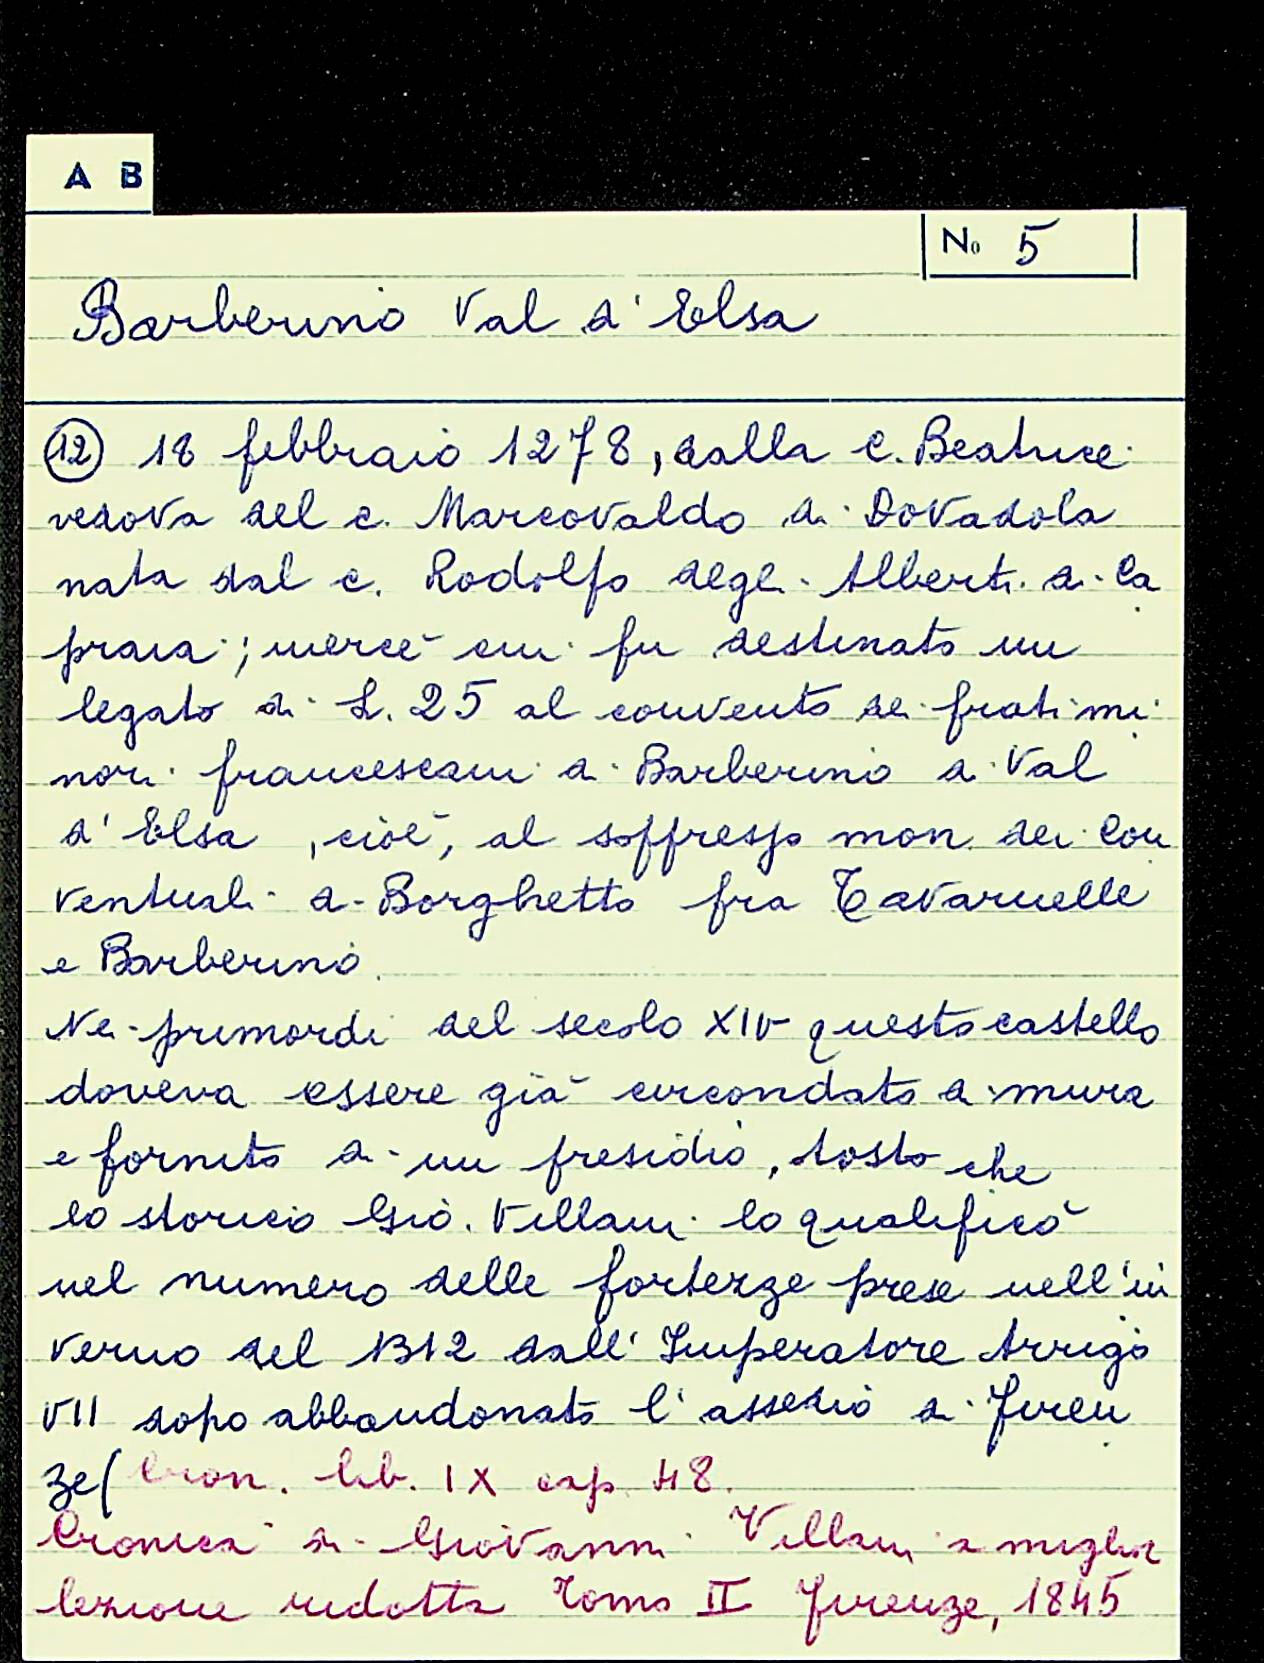 A B
No 5
Barberino Val d'Elsa
(12) 18 febbraio 1278, dalla c. Beatrice
vedova del c. Marcovaldo di Dovadola
nata dal c. Rodolfo degl. Alberti di Ca
praia; mercè cui fu destinato un
legato di L. 25 al convento dei frati mi
nori francescani di Barberino di Val
d'Elsa, cioè, al soffresso mon. dei Con
ventuali di Borghetto fra Tavarnelle
e Barberino.
Nei primordi del secolo XIV questo castello
doveva essere già circondato di mura
e fornito di un presidio, tosto che
lo storico Giò. Villani lo qualificò
nel numero delle fortezze prese nell'in
verno del 1312 dall'Imperatore Arrigo
VII dopo abbandonato l'assedio di Firen
ze (Cron. lib. IX cap 48.
Cronica di Giovanni Villani a miglior
lezione ridotta Tomo II Firenze, 1845